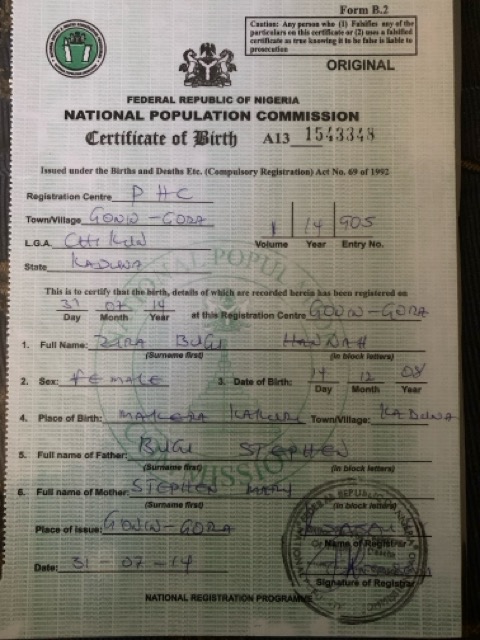 Form B.2
Caution: Any person who (1) Falsifies any of the
particulars on this certificate or (2) uses a falsified
certificate as true knowing it to be false is liable to
prosecution
ORIGINAL
FEDERAL REPUBLIC OF NIGERIA
NATIONAL POPULATION COMMISSION
Certificate of Birth A13 1543348
Issued under the Births and Deaths Etc. (Compulsory Registration) Act No. 69 of 1992
Registration Centre PHC
Town/Village GONIN-GORA
L.G.A. CHIKUN
1 14 905
Volume Year Entry No.
State KADUNA
This is to certify that the birth, details of which are recorded herein has been registered on
31 07 14 at this Registration Centre GONIN-GORA
Day Month Year
1. Full Name: BUGI HANNAH
(Surname first) (In block letters)
2. Sex: FEMALE 3. Date of Birth: 14 12 08
Day Month Year
4. Place of Birth: MAKERA KAKURI Town/Village: KADUNA
5. Full name of Father: BUGI STEPHEN
(Surname first) (In block letters)
6. Full name of Mother: STEPHEN MARY
(Surname first) (In block letters)
Place of Issue: GONIN-GORA
Name of Registrar
Date: 31-07-14
Signature of Registrar
NATIONAL REGISTRATION PROGRAMME